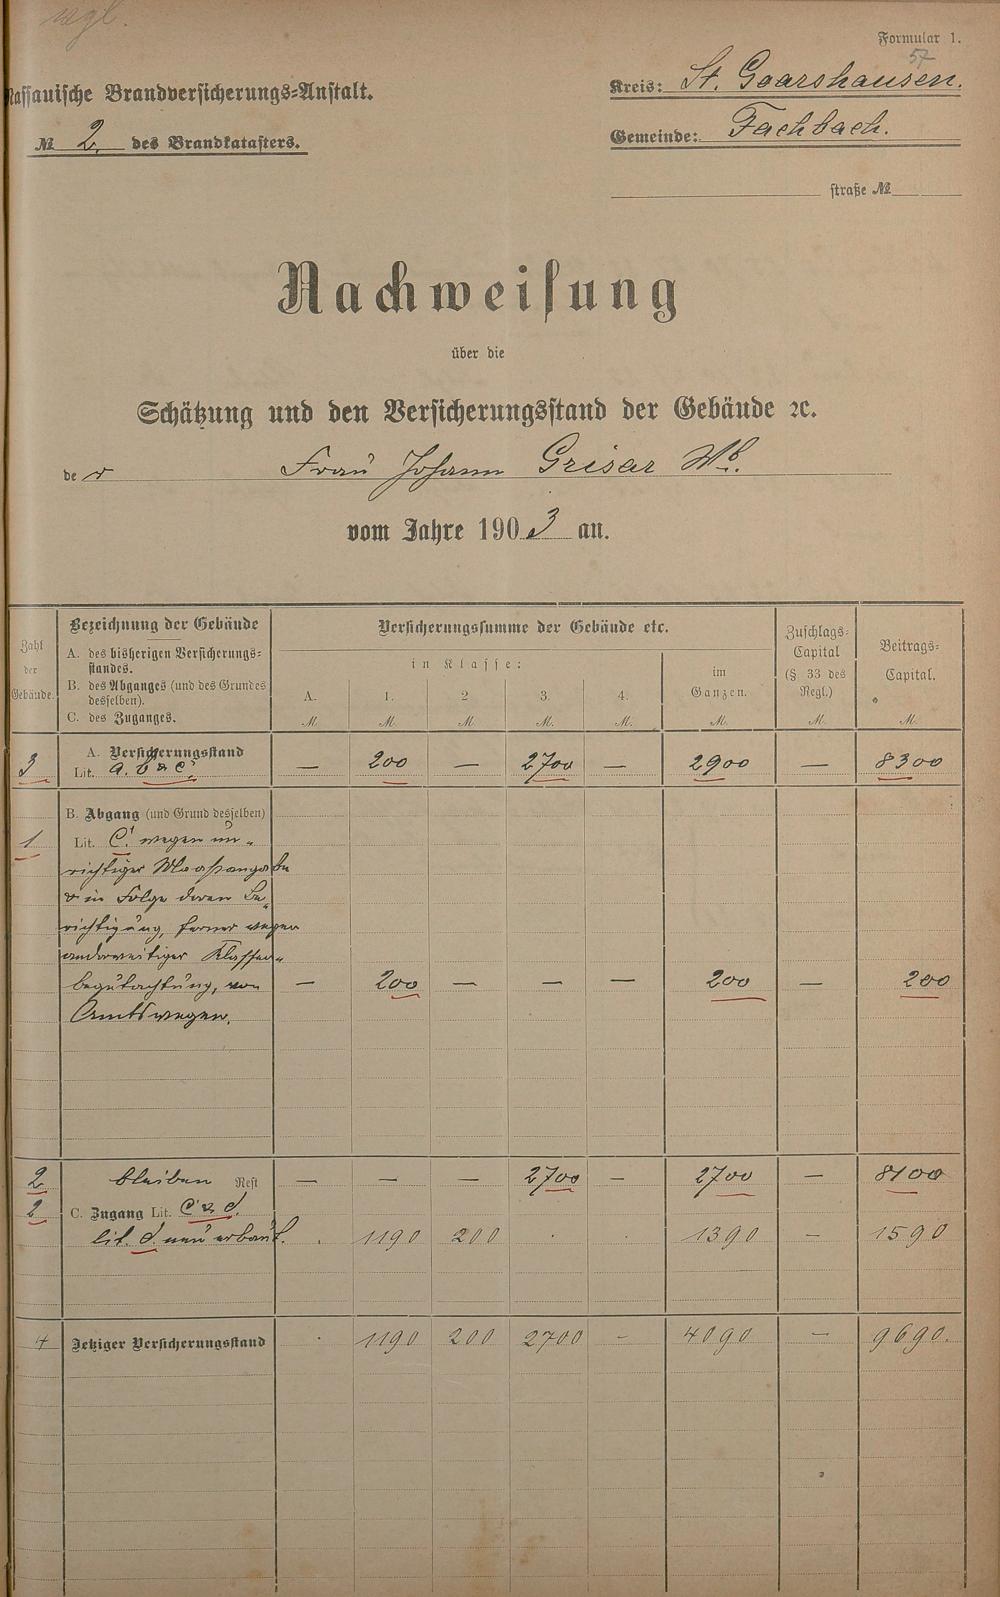 vgl.
Formular 1.
57
Nassauische Brandversicherungs-Anstalt.
Kreis: St. Goarshausen.
№ 2. des Brandkatasters.
Gemeinde: Fachbach.
straße №
Nachweisung
über die
Schätzung und den Versicherungsstand der Gebäude ꝛc.
der Frau Johann Grisar Wb.
vom Jahre 1903 an.
Zahl der Gebäude.
Bezeichnung der Gebäude
A. des bisherigen Versicherungs-
standes.
B. des Abganges (und des Grundes
desselben).
C. des Zuganges.
Versicherungssumme der Gebäude etc.
in Klasse:
A. 1. 2 3. 4. im Ganzen.
Zuschlags-
Capital
(§ 33 des
Regl.)
Beitrags-
Capital.
M. M. M. M. M. M. M. M.
A. Versicherungsstand
3 Lit. a. b & c. — 200 — 2700 — 2900 — 8300
B. Abgang (und Grund desselben)
1 Lit. C. wegen un-
richtiger Maaßangabe
& in Folge deren Be-
richtigung, ferner wegen
anderweitiger Klassen-
begutachtung, von — 200 — — — 200 — 200
Amtswegen.
2 bleiben Rest — — — 2700 — 2700 — 8100
2 C. Zugang Lit. C & d.
lit. d. neu erbaut. . 1190 200 . . 1390 — 1590
4 Jetziger Versicherungsstand . 1190 200 2700 - 4090 — 9690.